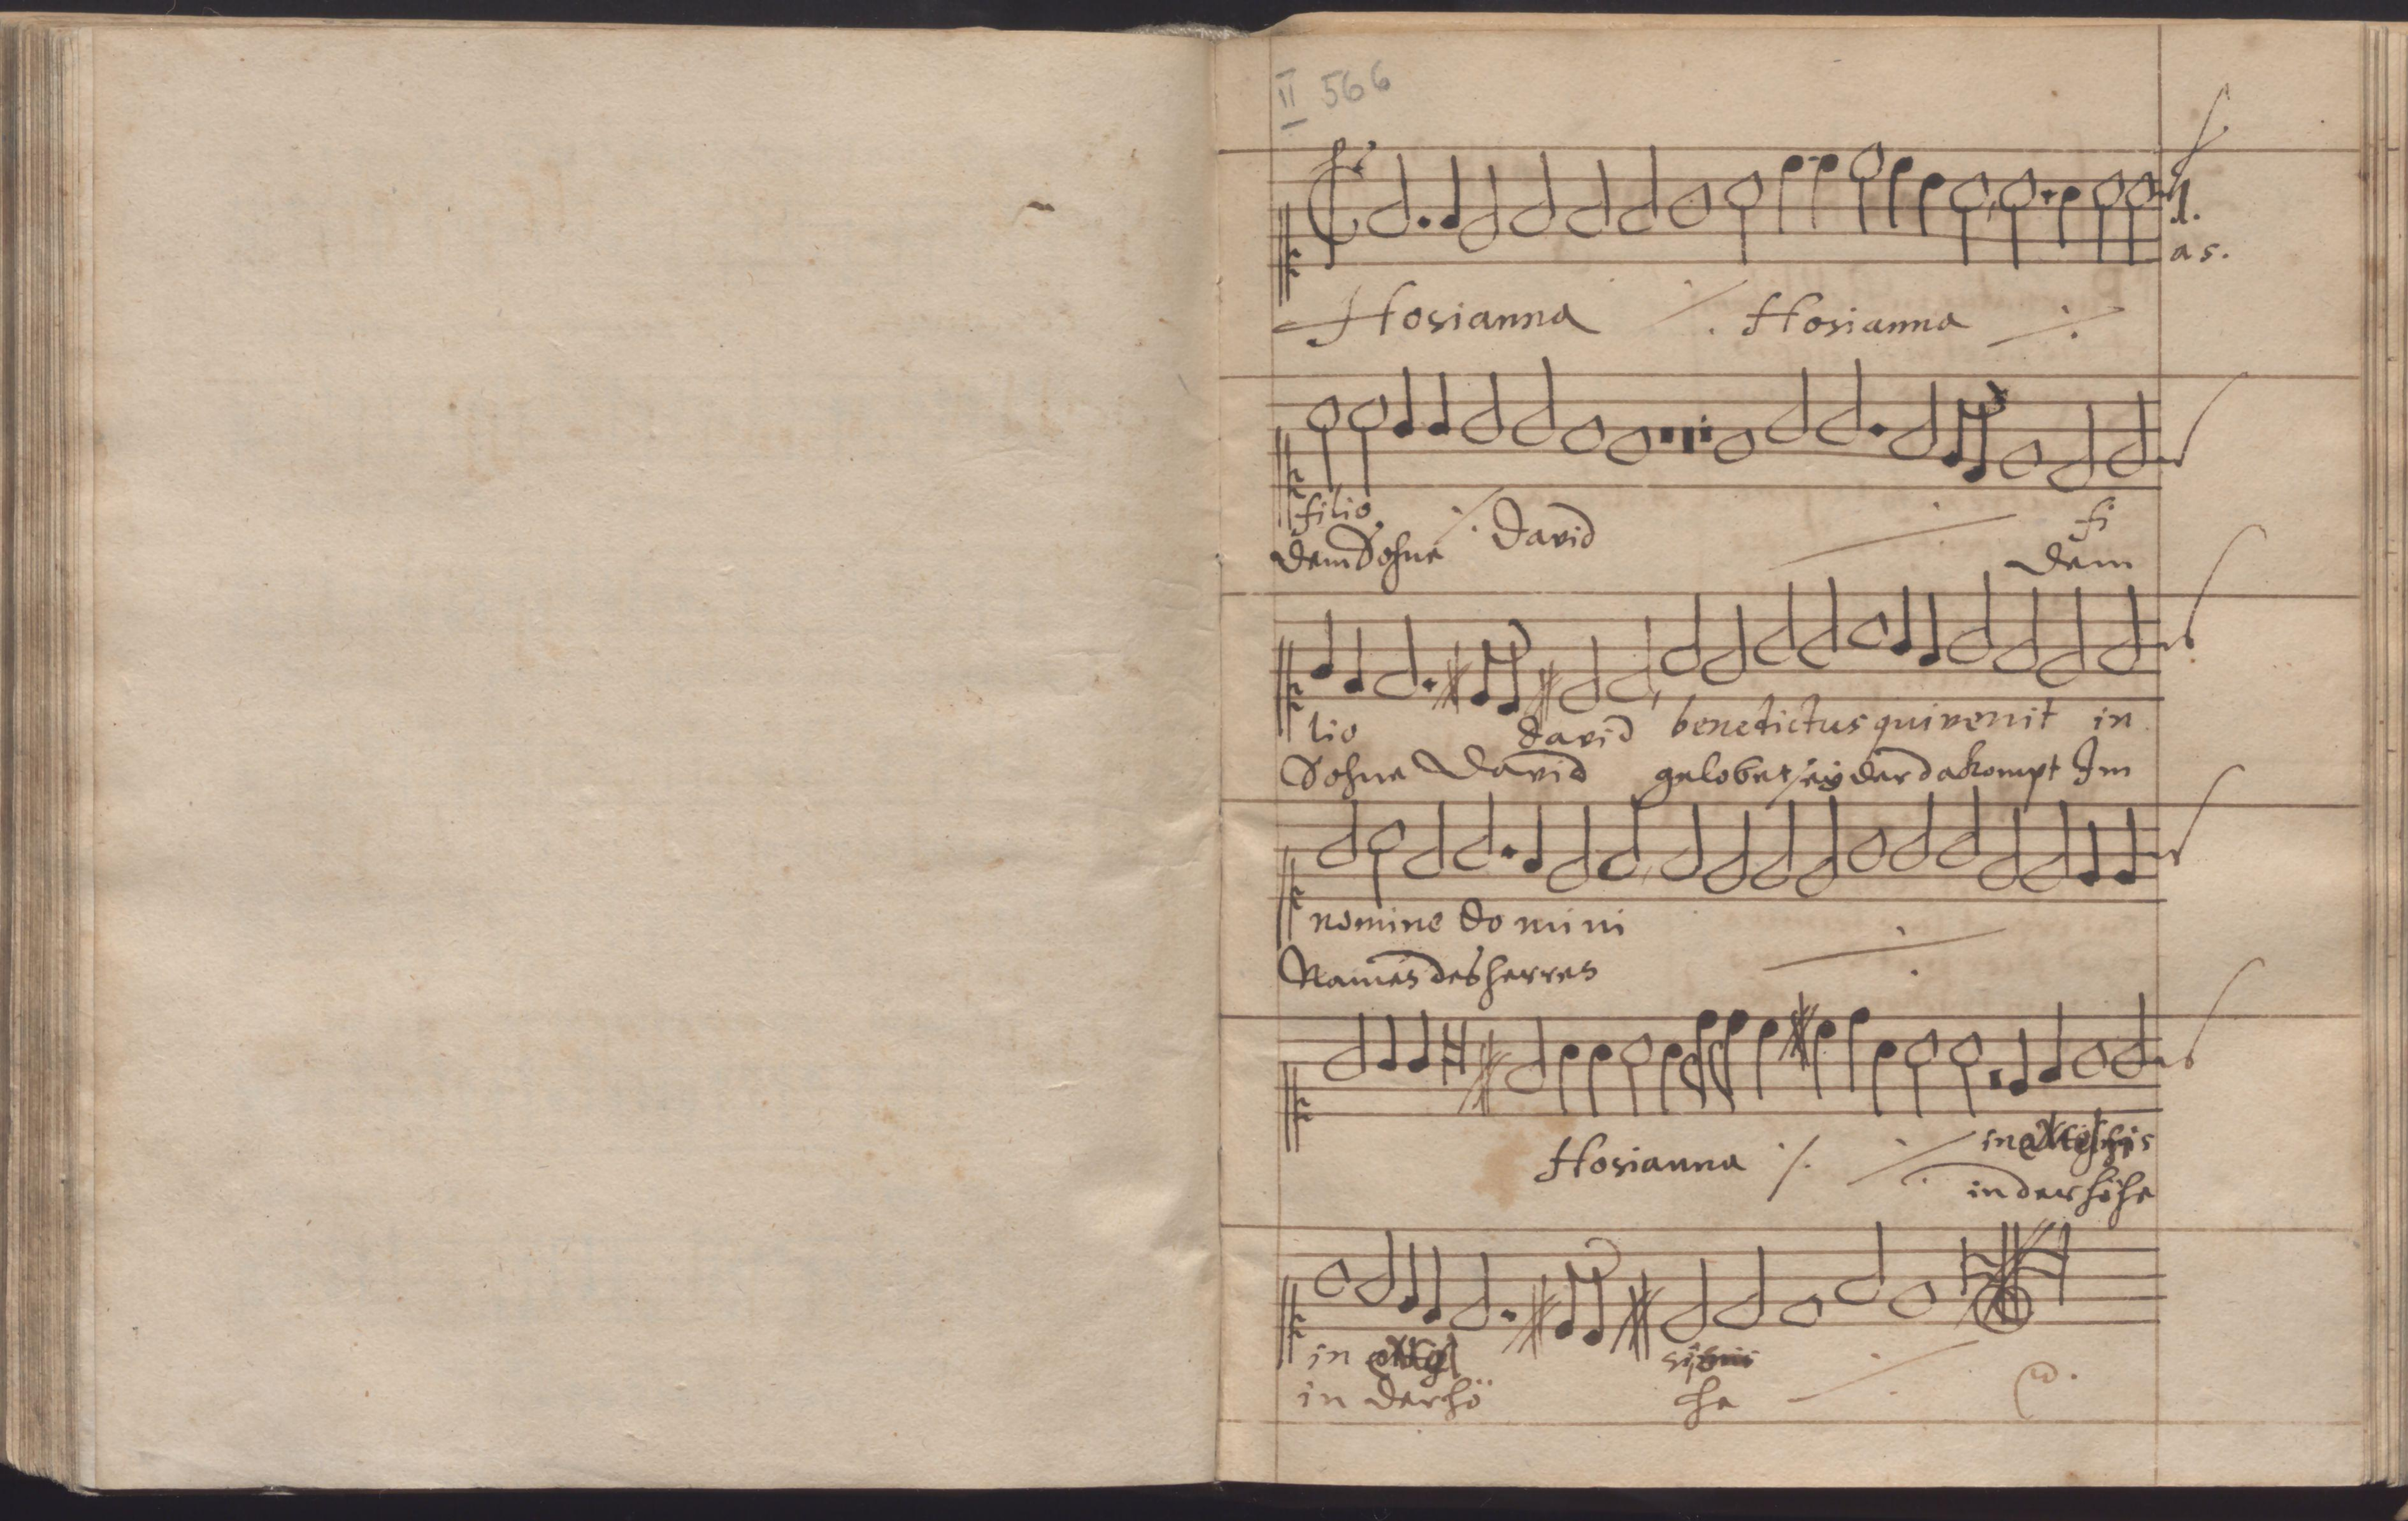 II 566
1.
as.
Hosianna ·/. Hosianna ·/.
filio ·/. David ·/. fi
dem Sohne dem
lio david benedictus qui venit in
Sohne David gelobet sey der da kompt Im
nomine do mini ·/.
Names des herres
Hosianna ·/. ·/. in
in der höhe
in
in der hö he ·/.